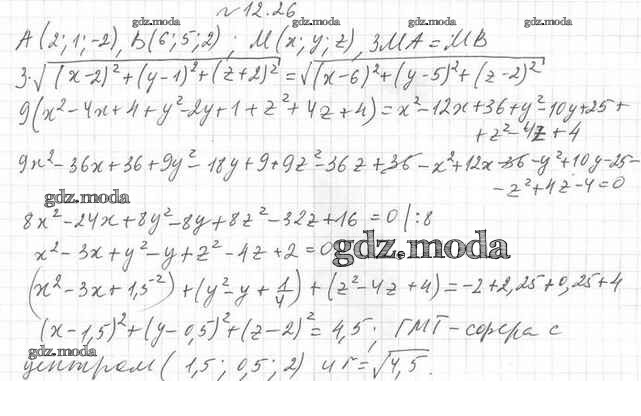 № 12.26
gdz.moda gdz.moda gdz.moda
A(2; 1; -2), B(6; 5; 2); M(x; y; z), 3MA = MB
3·√((x-2)²+(y-1)²+(z+2)²) = √((x-6)²+(y-5)²+(z-2)²)
9(x²-4x+4+y²-2y+1+z²+4z+4) = x²-12x+36+y²-10y+25+
+z²-4z+4
9x²-36x+36+9y²-18y+9+9z²-36z+36-x²+12x-36-y²+10y-25-
-z²+4z-4=0
gdz.moda
8x²-24x+8y²-8y+8z²-32z+16=0 |:8
x²-3x+y²-y+z²-4z+2=0
gdz.moda
(x²-3x+1,5²)+(y²-y+1/4)+(z²-4z+4)=-2+2,25+0,25+4
(x-1,5)²+(y-0,5)²+(z-2)²=4,5; ГМТ-сфера с
gdz.moda
центром (1,5; 0,5; 2) и r=√4,5.
gdz.moda